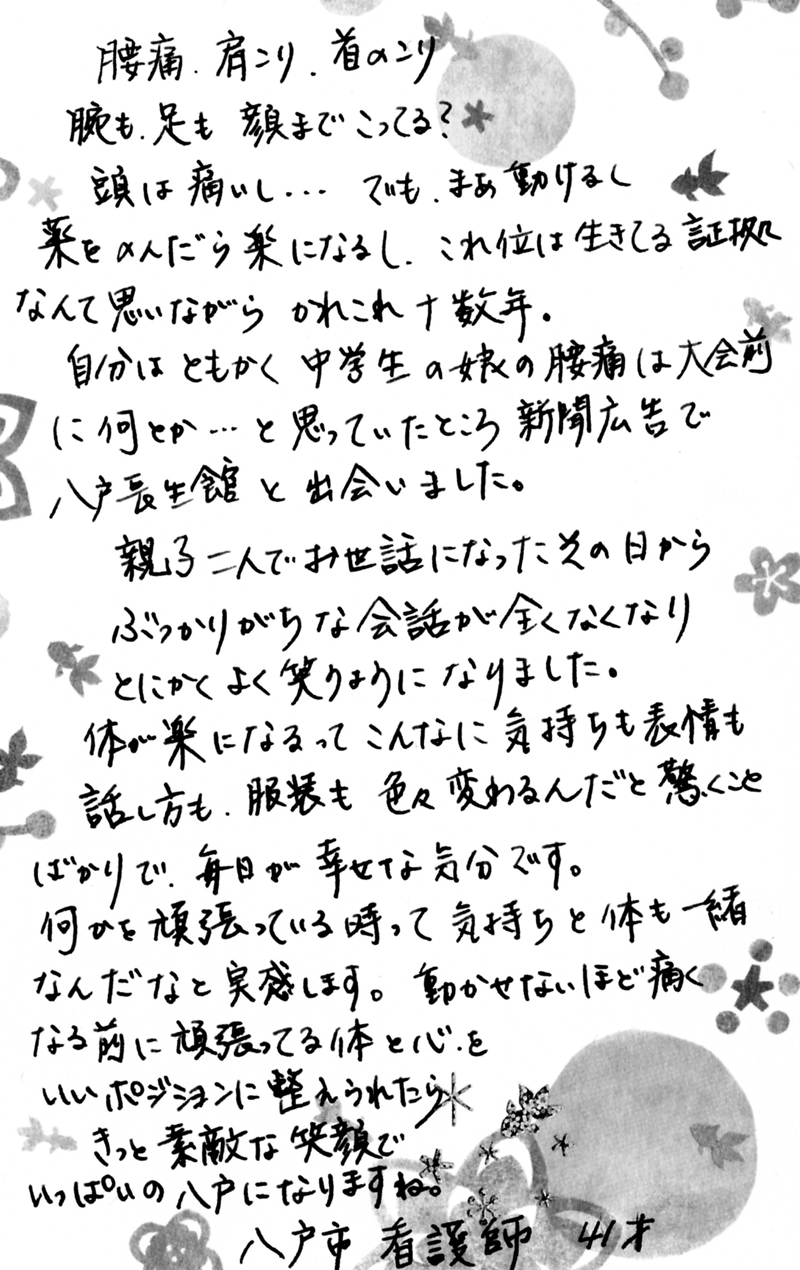 腰痛、肩こり、首のこり
腕も、足も 顔までこってる?
頭は痛いし… でも、まあ動けるし
薬をのんだら楽になるし、これ位は生きてる証拠
なんて思いながら かれこれ十数年。
自分はともかく 中学生の娘の腰痛は大会前
に何とか…と思っていたところ 新聞広告で
八戸長生館と出会いました。
親子二人でお世話になったその日から
ぶつかりがちな会話が全くなくなり
とにかくよく笑うようになりました。
体が楽になるってこんなに気持ちも表情も
話し方も、服装も 色々変わるんだと驚くこと
ばかりで、毎日が幸せな気分です。
何かを頑張っている時って気持ちと体も一緒
なんだなと実感します。動かせないほど痛く
なる前に頑張ってる体と心を
いいポジションに整えられたら
きっと素敵な笑顔で
いっぱいの八戸になりますね。
八戸市 看護師 41才